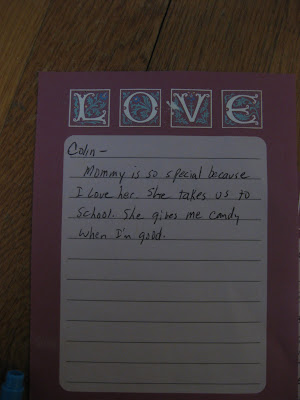 LOVE
Colin-
Mommy is so special because
I love her. She takes us to
school. She gives me candy
when I'm good.